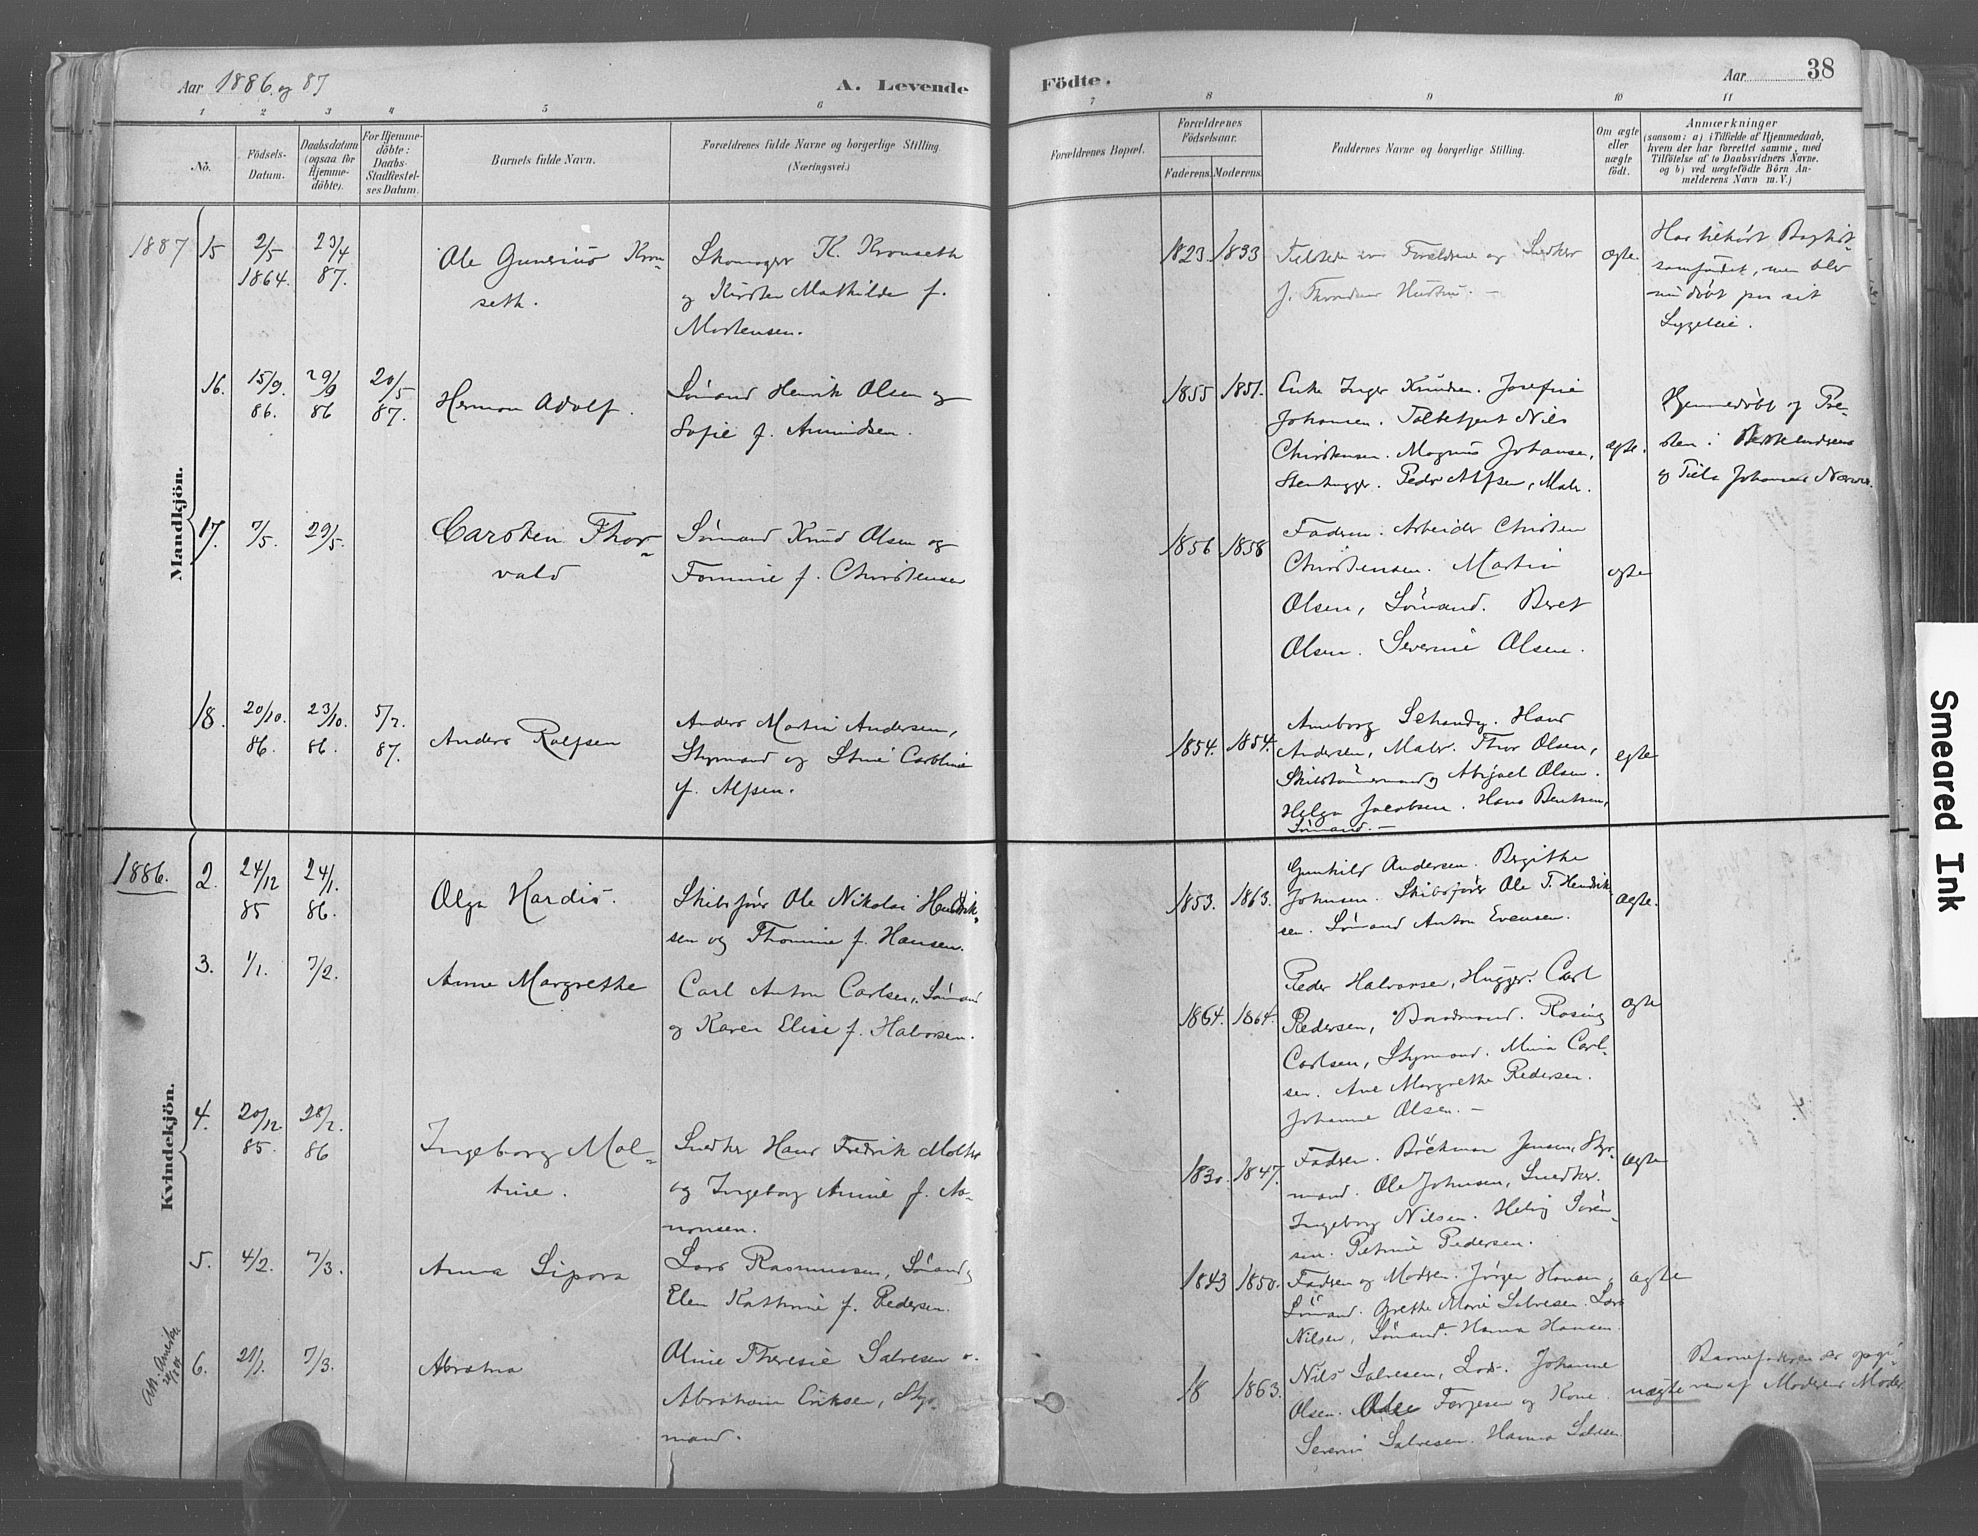 Aar 1886 og 87
A. Levende
Födte.
Aar 38
1 2 3 4 5 6 7 8 9 10 11
No.
Födsels-
Datum.
Daabsdatum
(ogsaa for
Hjemme-
döbte).
For Hjemme-
döbte:
Daabs-
Stadfæstel-
ses Datum.
Barnets fulde Navn.
Forældrenes fulde Navne og borgerlige Stilling
(Næringsvei.)
Forældrenes Bopæl.
Forældrenes
Födselsaar.
Faderens. Moderens.
Faddernes Navne og borgerlige Stilling.
Om ægte
eller
uægte
födt.
Anmærkninger
(saasom: a) i Tilfælde af Hjemmedaab,
hvem der har forrettet samme, med
Tilföielse af to Daabsvidners Navne.
og b) ved uægtefödte Börn An-
melderens Navn m. V.)
Mandkjön.
1887 15 2/5 1864. 23/4 87.
Ole Gunerius Kron-
seth.
Skomager K. Kronseth
og Kirsten Mathilde f.
Mortensen.
1823. 1833
Forældrene og Snedker
ægte.
Har tilhørt Baptist-
samfundet, men blev
nu døbt paa sit
Sygeleie.
16. 15/9 86. 29/9 86 20/5 87.
Herman Adolf.
Sømand Henrik Olsen og
Sofie f. Amundsen.
1855 1851.
Enke Inger Knudsen. Josefine
Johansen. Toltbetjent Nils
Christensen. Magnus Johansen,
Stenhugger. Peder Alfsen, Maler.
ægte.
Hjemmedøbt af
og Johansen
17. 7/5. 29/5.
Carsten Thor-
vald
Sømand Knud Olsen og
Tomine f. Christensen
1856 1858
Faderen. Arbeider Christen
Christensen. Martin
Olsen, Sømand. Beret
Olsen. Severine Olsen.
ægte
18. 20/10. 86. 23/10. 86. 5/2. 87.
Anders Rolfsen
Anders Martin Andersen,
Styrmand og Stine Caroline
f. Alfsen.
1854. 1854.
Hans
Andersen, Maler. Thor Olsen,
Skibstømmermand og Abigael Olsen.
Helga Jacobsen. Hans Bentsen,
Sømand. —
ægte
Kvindekjön.
1886. 2. 24/12 85 24/1. 86.
Olga Hardis.
Skibsfører Ole Nikolai Hendrik-
sen og Thomine f. Hansen.
1853. 1863.
Gunhild Andersen. Bergithe
Johnsen. Skibsfører Ole T. Hendrik-
sen. Sømand Anton Evensen.
ægte.
3. 1/1. 7/2.
Anne Margrethe
Carl Anton Carlsen, Sømand
og Karen Elise f. Halvorsen.
1864. 1864.
Peder Halvorsen, Hugger. Carl
Pedersen, Baadsmand. Rosine
Carlsen, Styrmand. Mina Carl-
sen. Ane Margrethe Pedersen.
Johanne Olsen. —
ægte
4. 20/12 85. 28/2. 86
Ingeborg Mal-
tine.
Snedker Hans Fredrik Molter
og Ingeborg Annie f. Aa-
nonsen.
1830. 1847.
Faderen. Böckman Jensen, Styr-
mand. Ole Johnsen, Snedker.
Ingeborg Nilsen. Helvig Sören-
sen. Petrine Pedersen.
ægte
5. 4/2. 7/3.
Anna Sipora
Lars Rasmussen, Sømand og
Elen Kathrine f. Pedersen.
1843 1850.
Fadren og Modren. Jörgen Hansen,
Sømand. Grethe Marie Salvesen. Lars
Nilsen, Sømand. Hanna Hansen.
ægte
6. 7/3.
Abratna
Oline Theresie Salvesen o.
Abraham Eriksen, Styr-
mand.
18 1863.
Nils Salvesen, Lods. Johanne
Olsen. Torjesen og Kone.
Severin Salvesen. Hanna Salvesen
uægte
Barnefaderen er opgi-
ven af Moderens Moder
Smeared Ink